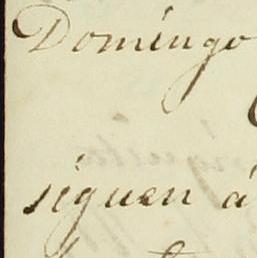 Domingo
siguen á